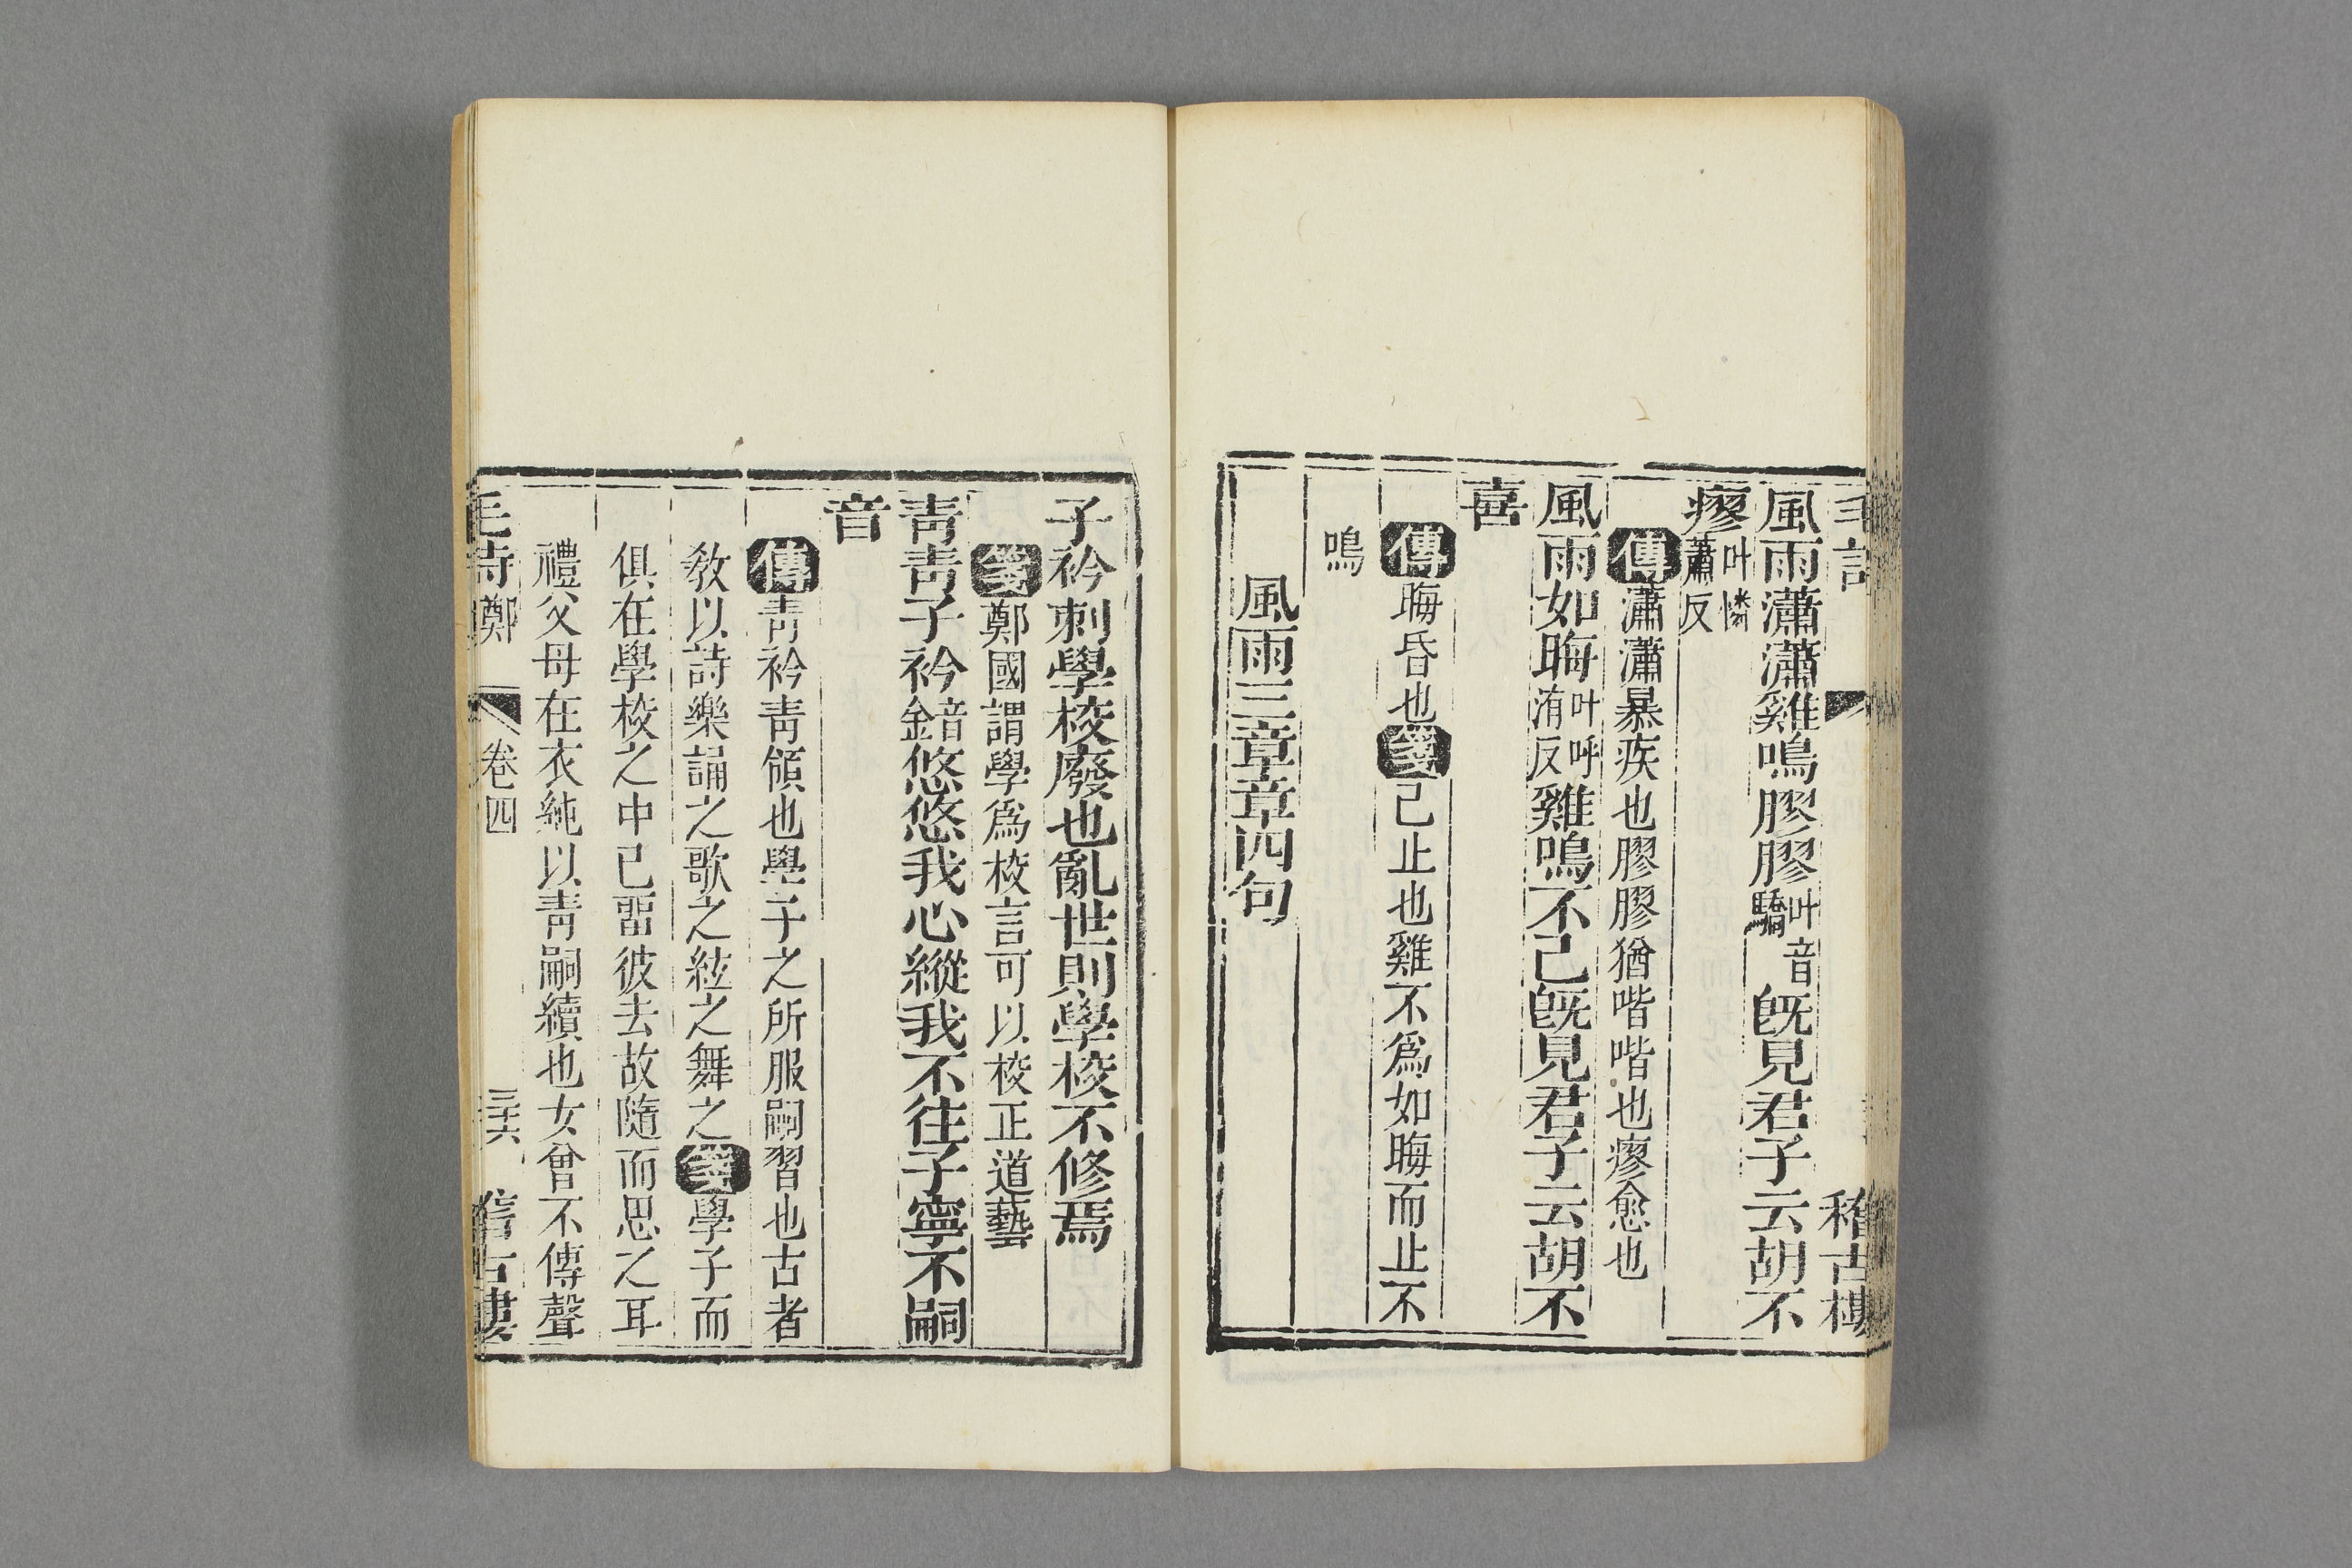 風雨瀟瀟雞鳴膠膠叶音驕旣見君子云胡不
瘳叶憐蕭反
傳瀟瀟暴疾也膠膠猶喈喈也瘳愈也
風雨如晦叶呼洧反雞鳴不已旣見君子云胡不
喜
傳晦昏也箋已止也雞不爲如晦而止不
鳴
風雨三章章四句
稽古樓
子衿刺學校廢也亂世則學校不修焉
箋鄭國謂學爲校言可以校正道藝
靑靑子衿音金悠悠我心縱我不往子寧不嗣
音
傳靑衿靑領也學子之所服嗣習也古者
敎以詩樂誦之歌之絃之舞之箋學子而
俱在學校之中已畱彼去故隨而思之耳
禮父母在衣純以靑嗣續也女曾不傳聲
毛詩 鄭 卷四 三十六 稽古樓